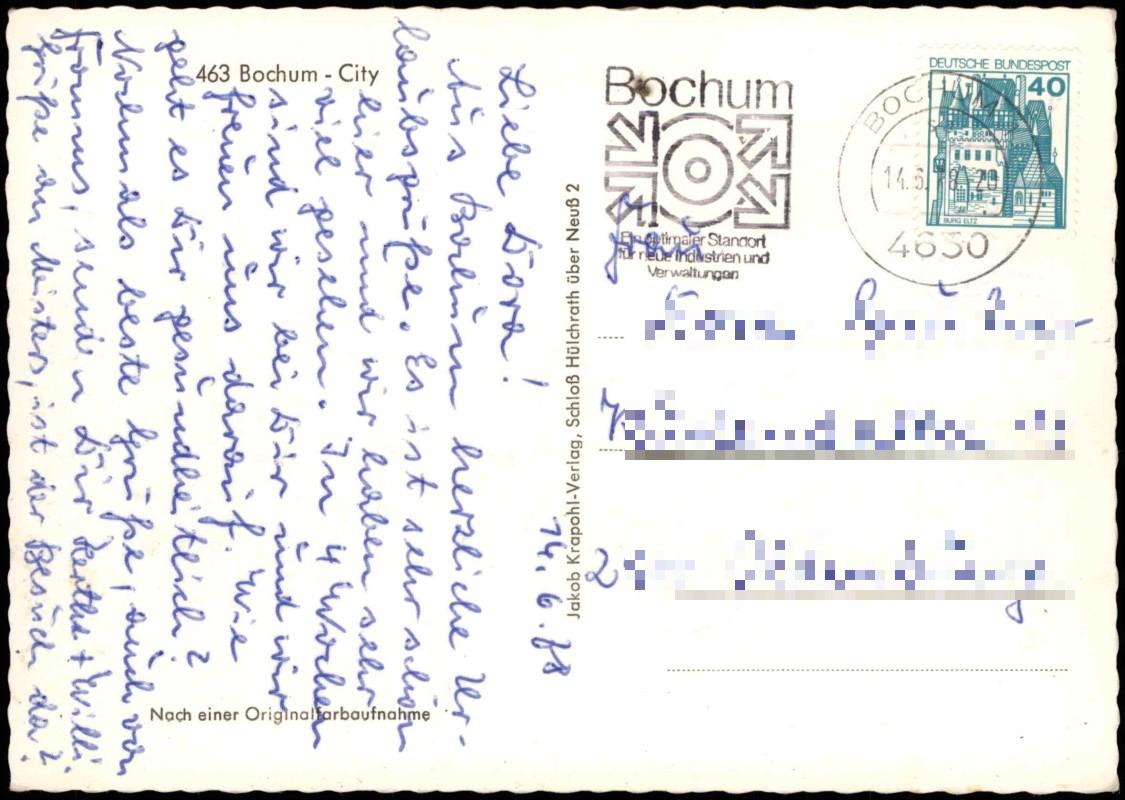 463 Bochum - City
14. 6. 78
Liebe Dora!
Aus Bochum herzliche Ur-
laubsgrüße. Es ist sehr schön
hier und wir haben sehr
viel gesehen. In 4 Wochen
sind wir bei Dir und wir
freuen uns darauf. Wie
geht es Dir gesundheitlich?
Nochmals beste Grüße, auch von
senden Dir Hertha + Willi
Grüße an Meisters, ist der Besuch da?
Nach einer Originalfarbaufnahme
Jakob Krapohl-Verlag, Schloß Hülchrath über Neuß 2
Bochum
Ein optimaler Standort
für neue Industrien und
Verwaltungen
DEUTSCHE BUNDESPOST
40
BURG ELTZ
BOCHUM
4630
Frau
2